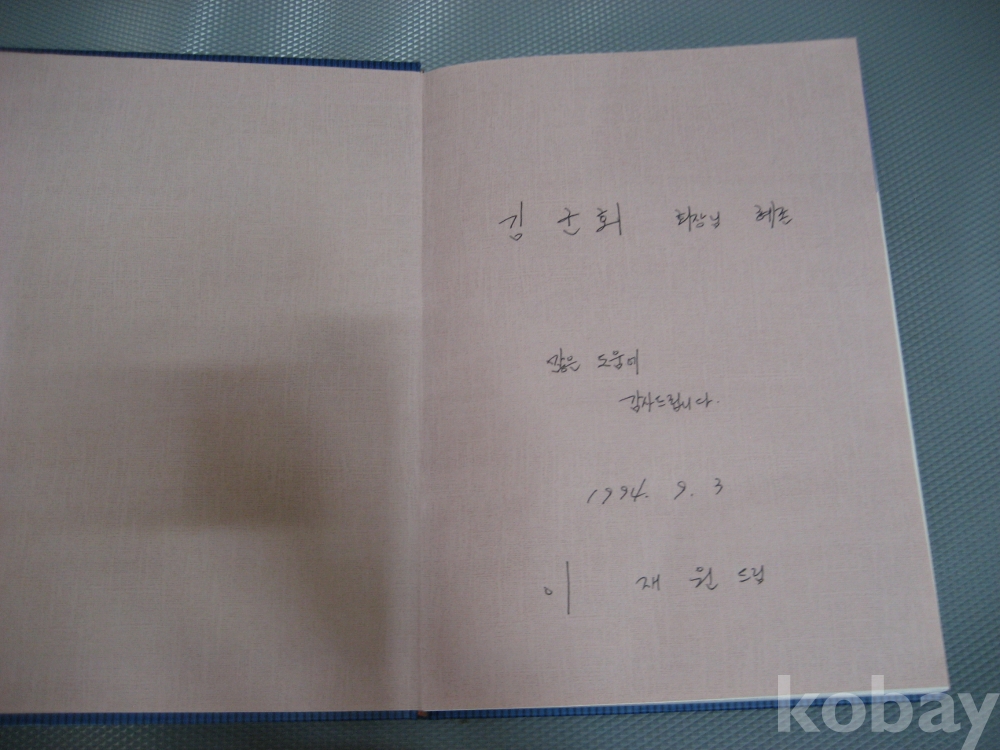 김군회 회장님 혜존
많은 도움에
감사드립니다.
1994. 9. 3
이 재원 드림
kobay